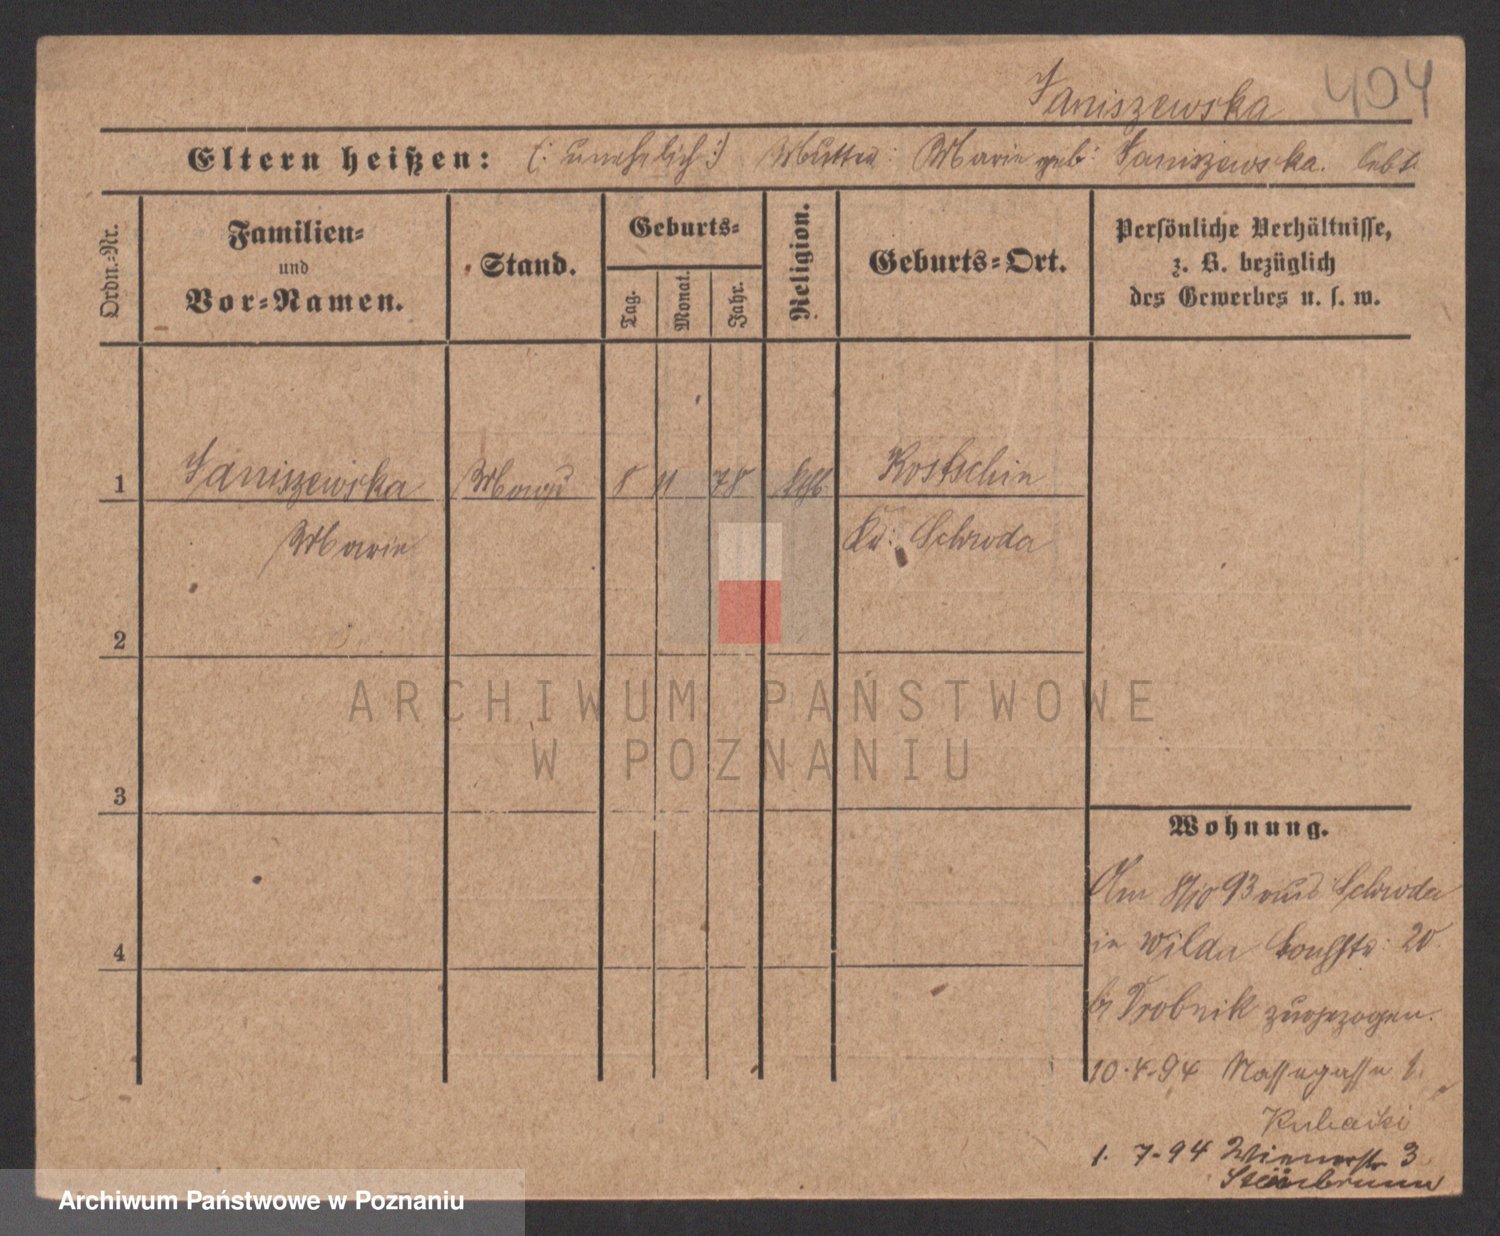 Janiszewska 404
Eltern heißen: (: unehelich :) Mutter: Marie geb: Janiszewska. lebt
Ordn.-Nr.
Familien-
und
Vor-Namen.
Stand.
Geburts-
Tag.
Monat.
Jahr.
Religion.
Geburts-Ort.
Persönliche Verhältnisse,
z. B. bezüglich
des Gewerbes u. s. w.
1 Janiszewska 8 11 78 kath Kostschin
Marie Kr: Schroda
2
3
4
Wohnung.
Am 8/10 93 aus Schroda
in Wilda 20
bei Drobnik zugezogen.
10.4.94 1.
Kubacki
1. 7-94 Wienerstr 3
ARCHIWUM PAŃSTWOWE
W POZNANIU
Archiwum Państwowe w Poznaniu